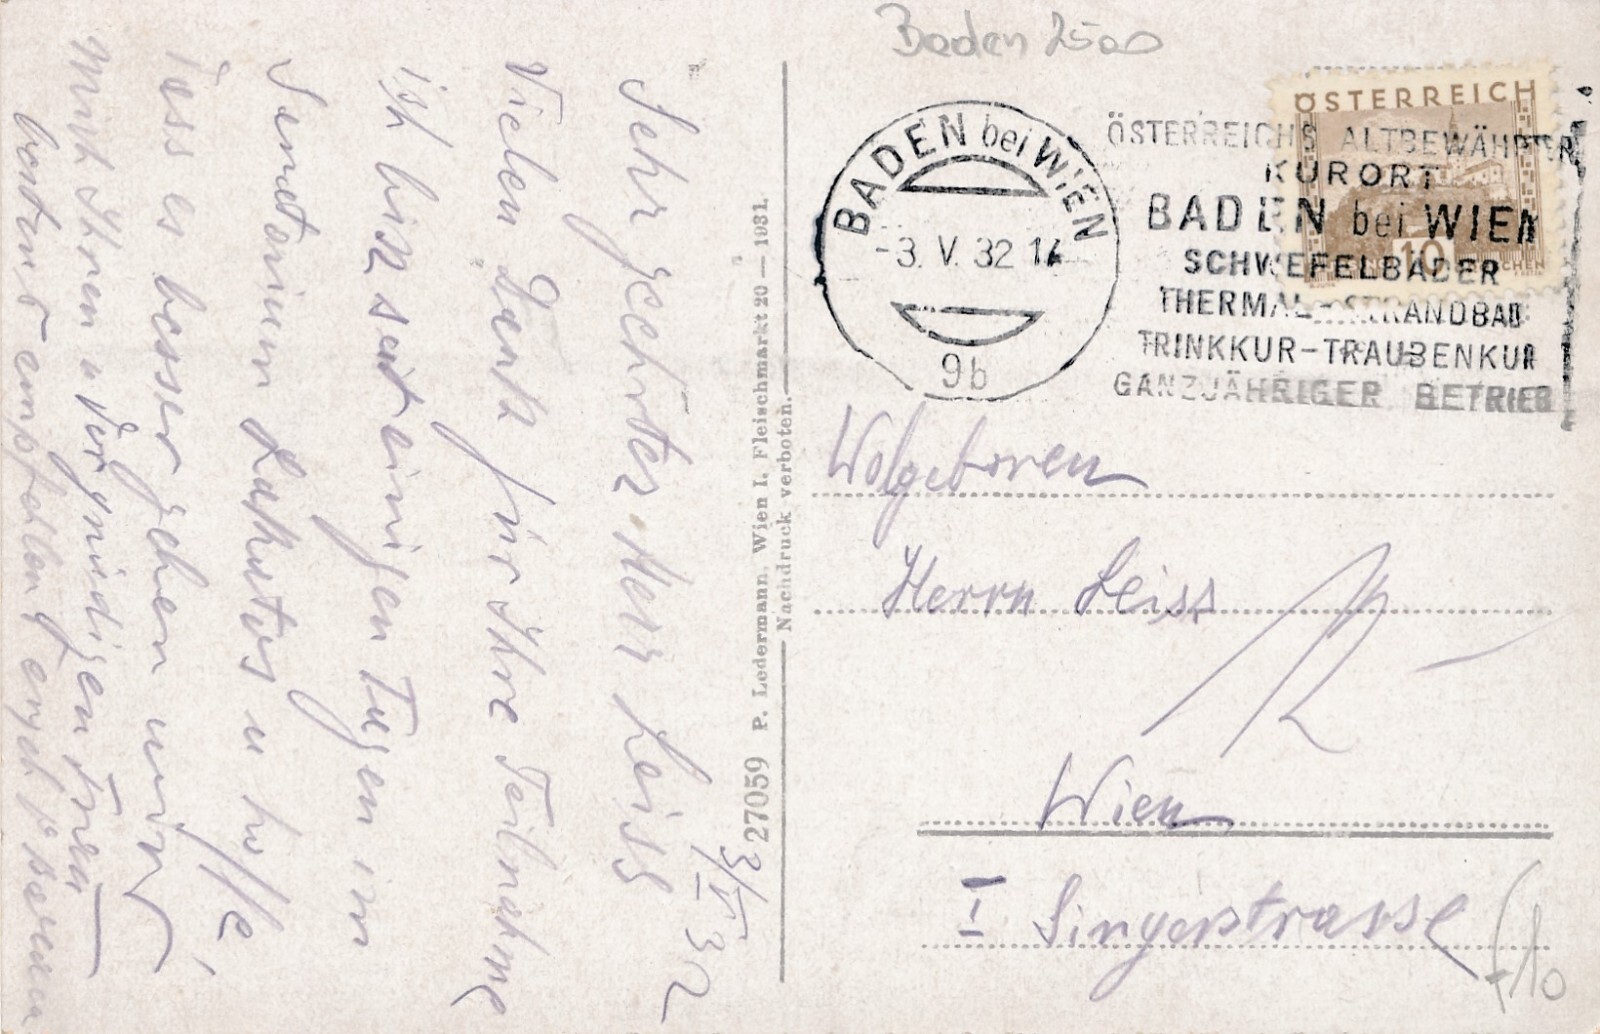 Baden 2500
ÖSTERREICH
10
BADEN bei WIEN
-3. V. 32 14
9b
ÖSTERREICHS ALTBEWÄHRTER
KURORT
BADEN bei WIEN
SCHWEFELBÄDER
THERMAL-STRANDBAD
TRINKKUR-TRAUBENKUR
GANZJÄHRIGER BETRIEB
Wolgeboren
Herrn Leiss
Wien
I Singerstrasse
£10
27059 P. Ledermann, Wien I. Fleischmarkt 20 — 1931.
Nachdruck verboten.
3/V 32
Sehr geehrter Herr Leiss
Vielen Dank für Ihre Teilnahme
ich bin seit einigen Tagen im
Sanatorium u hoffe,
dass es besser gehen wird
Ihnen u Ihr gnädigen Frau
bestens empfehlend